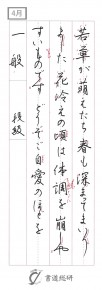 4月
若草が萌えたち春も深まってまいり
ました 花冷えの頃は体調を崩しや
すいものです どうぞご自愛のほどを
一般 後綴
書道総研